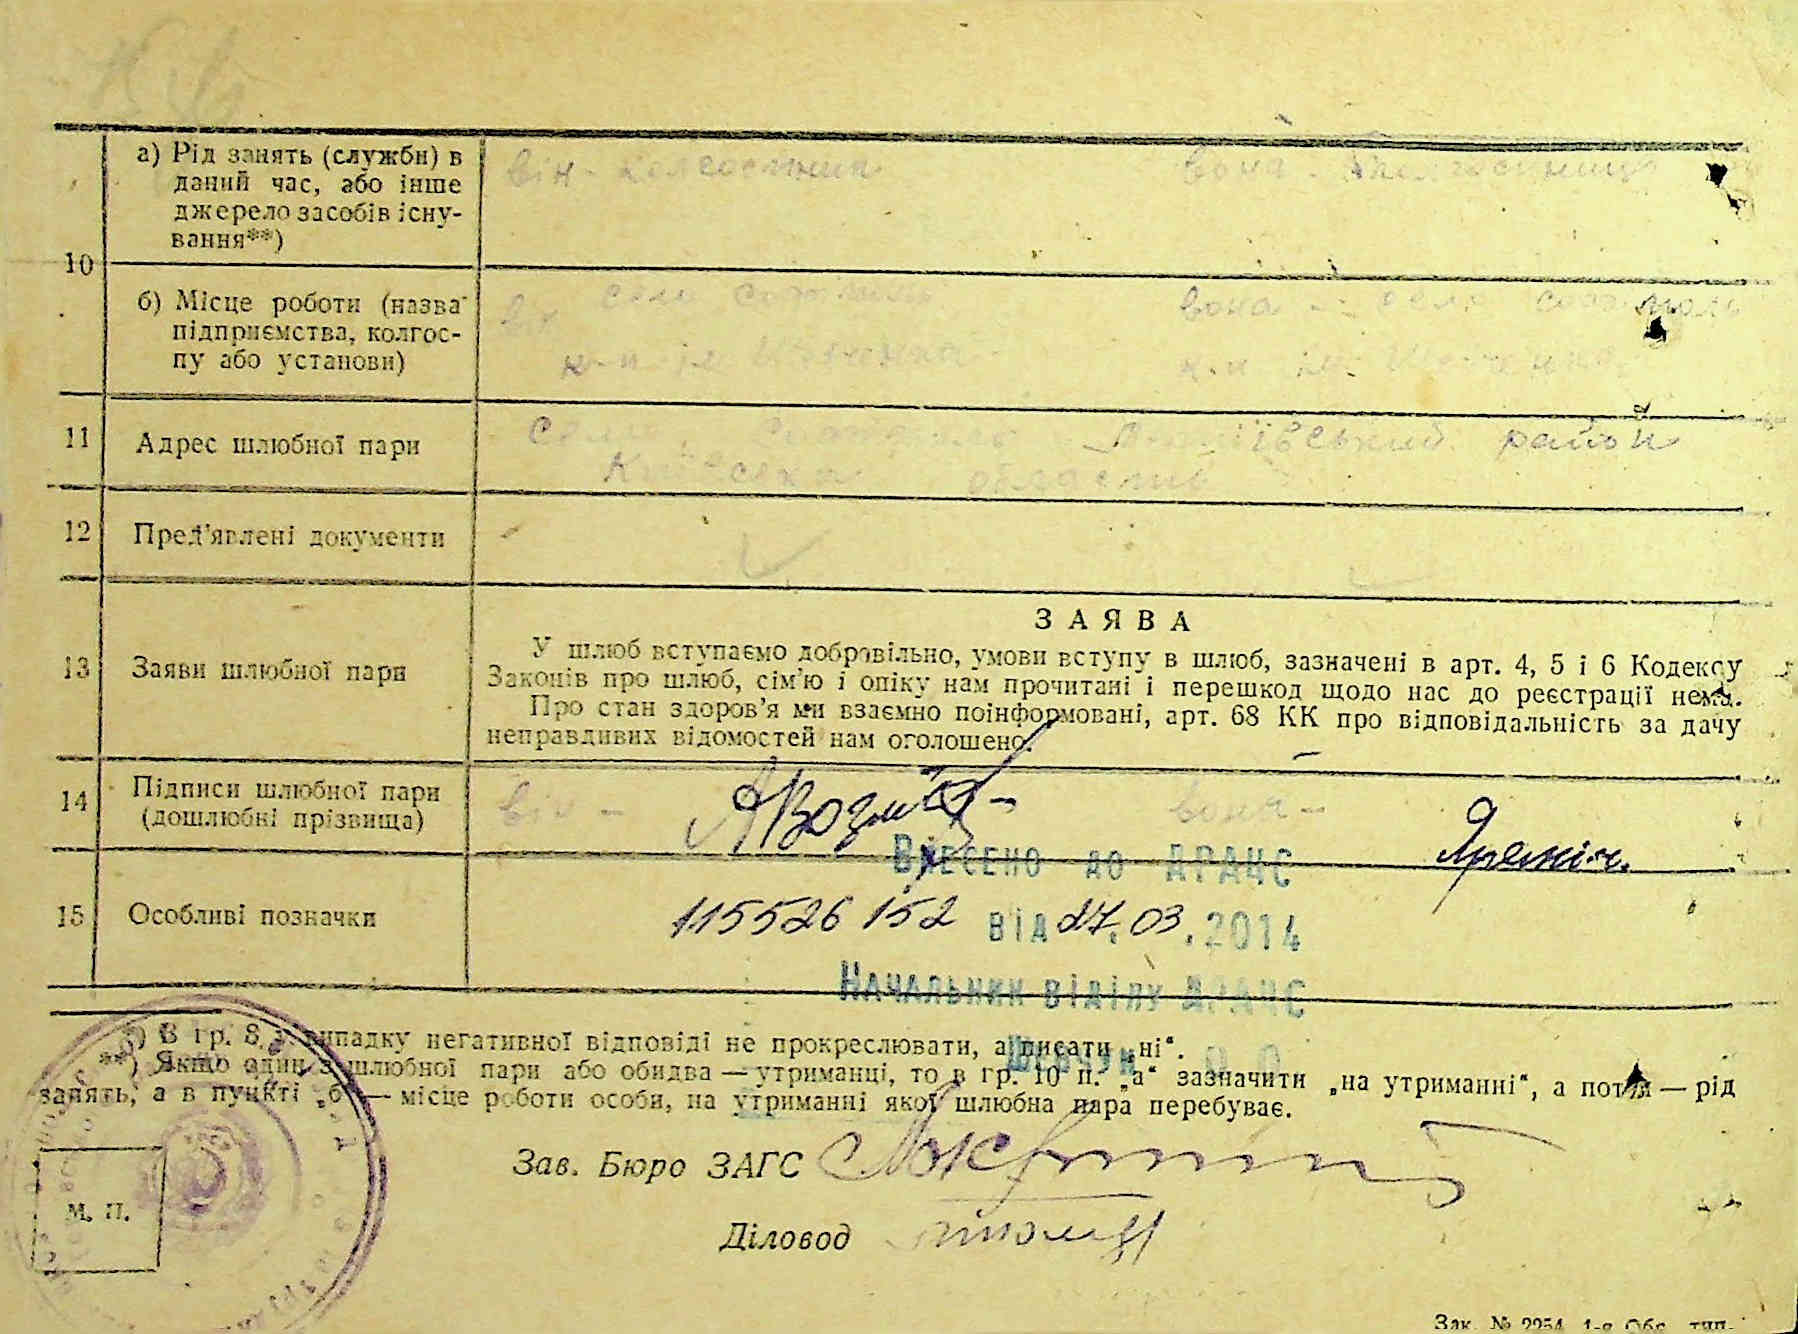 10
а) Рід занять (служби) в
даний час, або інше
джерело засобів існу-
вання**)
він - колгоспник
вона - колгоспниця
б) Місце роботи (назва
підприємства, колгос-
пу або установи)
він село
вона - село
к-п ім Шевченка
к-п ім. Шевченка
11
Адрес шлюбної пари
село район
Київська область
12
Пред'явлені документи
13
Заяви шлюбної пари
ЗАЯВА
У шлюб вступаємо добровільно, умови вступу в шлюб, зазначені в арт. 4, 5 і 6 Кодексу
Законів про шлюб, сім'ю і опіку нам прочитані і перешкод щодо нас до реєстрації нема.
Про стан здоров'я ми взаємно поінформовані, арт. 68 КК про відповідальність за дачу
неправдивих відомостей нам оголошено.
14
Підписи шлюбної пари
(дошлюбні прізвища)
він -
вона -
Внесено до ДРАЧС
15
Особливі позначки
115526152 від 27.03.2014
Начальник відділу ДРАЧС
Шевчук О.О.
*) В гр. 8 у випадку негативної відповіді не прокреслювати, а писати „ні“.
**) Якщо один з шлюбної пари або обидва — утриманці, то в гр. 10 п. „а“ зазначити „на утриманні“, а потім — рід
занять, а в пункті „б“ — місце роботи особи, на утриманні якої шлюбна пара перебуває.
Зав. Бюро ЗАГС
М. П.
Діловод
Зак. № 2254 1-я Обр. тип.